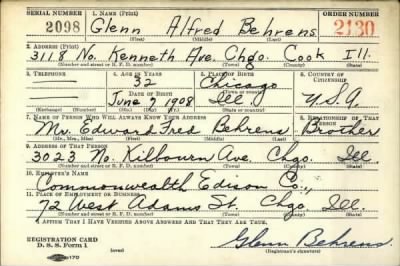 SERIAL NUMBER 1. NAME (Print) ORDER NUMBER
2098 Glenn Alfred Behrens 2130
(First) (Middle) (Last)
2. ADDRESS (Print)
3118 No. Kenneth Ave. Chgo. Cook Ill.
(Number and street or R. F. D. number) (Town) (County) (State)
3. TELEPHONE 4. AGE IN YEARS 5. PLACE OF BIRTH 6. COUNTRY OF CITIZENSHIP
32 Chicago
DATE OF BIRTH (Town or county)
June 1908 Ill. U.S.A.
(Exchange) (Number) (Mo.) (Day) (Yr.) (State or country)
7. NAME OF PERSON WHO WILL ALWAYS KNOW YOUR ADDRESS 8. RELATIONSHIP OF THAT PERSON
Mr. Edward Fred Behrens Brother
(Mr., Mrs., Miss) (First) (Middle) (Last)
9. ADDRESS OF THAT PERSON
3023 No. Kilbourn Ave. Chgo. Ill
(Number and street or R. F. D. number) (Town) (County) (State)
10. EMPLOYER'S NAME
Commonwealth Edison Co.,
11. PLACE OF EMPLOYMENT OR BUSINESS
72 West Adams St. Chgo Ill.
(Number and street or R. F. D. number) (Town) (County) (State)
I AFFIRM THAT I HAVE VERIFIED ABOVE ANSWERS AND THAT THEY ARE TRUE.
REGISTRATION CARD
D. S. S. Form 1 Glenn Behrens
(Registrant's signature)